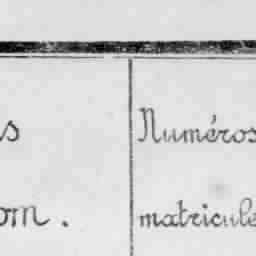 s
Numéros
om.
matricule